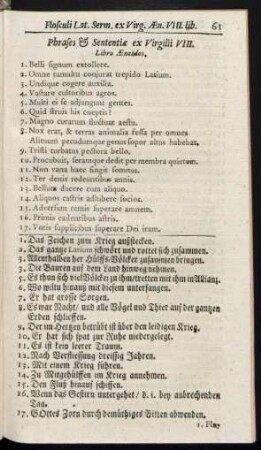 Flosculi Lat. Serm. ex Virg. Æn. VIII. lib. 63
Phrases & Sententiæ ex Virgilii VIII.
Libro Æneidos.
1. Belli signum extollere.
2. Omne tumultu conjurat trepido Latium.
3. Undique cogere auxilia.
4. Vastare cultoribus agros.
5. Multi ei se adjungunt gentes.
6. Quid struis his cœptis?
7. Magno curarum fluctuat æstu.
8. Nox erat, & terras animalia fessa per omnes
Alituum pecudumque genus sopor altus habebat.
9. Tristi turbatus pectora bello.
10. Procubuit, seramque dedit per membra quietem.
11. Non vana hæc fingit somnus.
12. Ter denis redeuntibus annis.
13. Bellum ducere cum aliquo.
14. Aliquos castris adhibere socios.
15. Adversum remis superare amnem.
16. Primis cadentibus astris.
17. Votis supplicibus superare Dei iram.
1. Das Zeichen zum Krieg aufstecken.
2. Das gantze Latium schwört und rottet sich zusammen.
3. Allenthalben her Hülffs-Völcker zusammen bringen.
4. Die Bauren auf dem Land hinweg nehmen.
5. Es thun sich viel Völcker zu ihm/tretten mit ihm in Allianz.
6. Wo wilst hinauß mit diesem unterfangen.
7. Er hat grosse Sorgen.
8. Es war Nacht/ und alle Vögel und Thier auf der gantzen
Erden schlieffen.
9. Der im Hertzen betrübt ist über den leidigen Krieg.
10. Er hat sich spat zur Ruhe niedergelegt.
11. Es ist kein leerer Traum.
12. Nach Verfliessung dreissig Jahren.
13. Mit einem Krieg führen.
14. Zu Mitgehülffen im Krieg annehmen.
15. Den Fluß hinauf schiffen.
16. Wenn das Gestirn untergehet/ d. i. bey anbrechenden
Tag.
17. GOttes Zorn durch demüthiges Bitten abwenden.